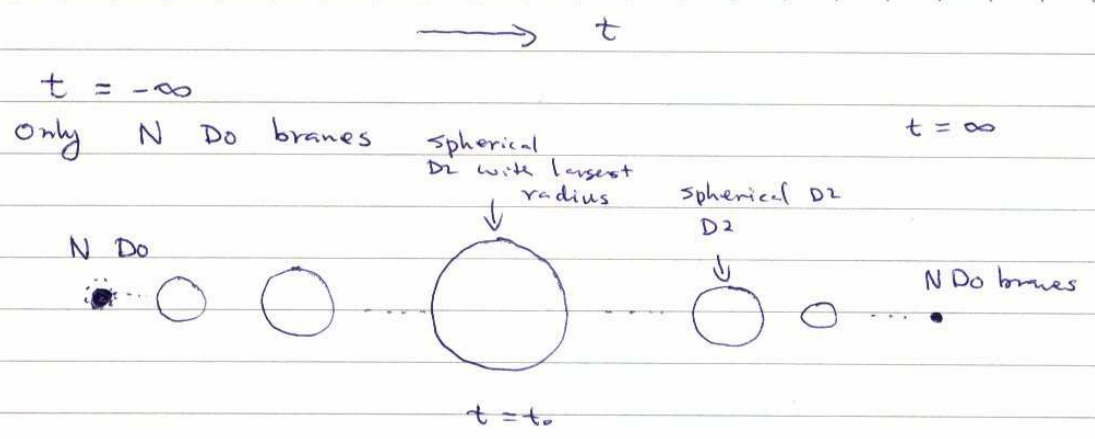 ⟶ t
t = -∞
Only N Do branes
t = ∞
spherical
D2 with largest
radius
spherical D2
D2
N Do
N Do branes
t = t₀